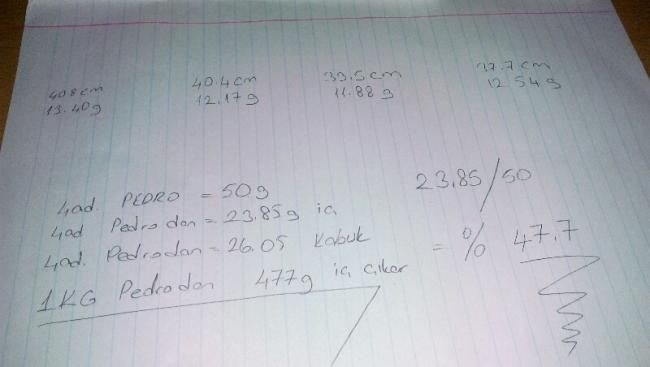 40.8cm 40.4cm 39.5cm 37.7cm
13.40g 12.17g 11.88g 12.54g
4ad. PEDRO = 50g
4ad Pedrodan = 23.85g iç
4ad. Pedrodan = 26.05 Kabuk
1KG Pedrodan 477g iç çıkar
23.85/50
= % 47.7